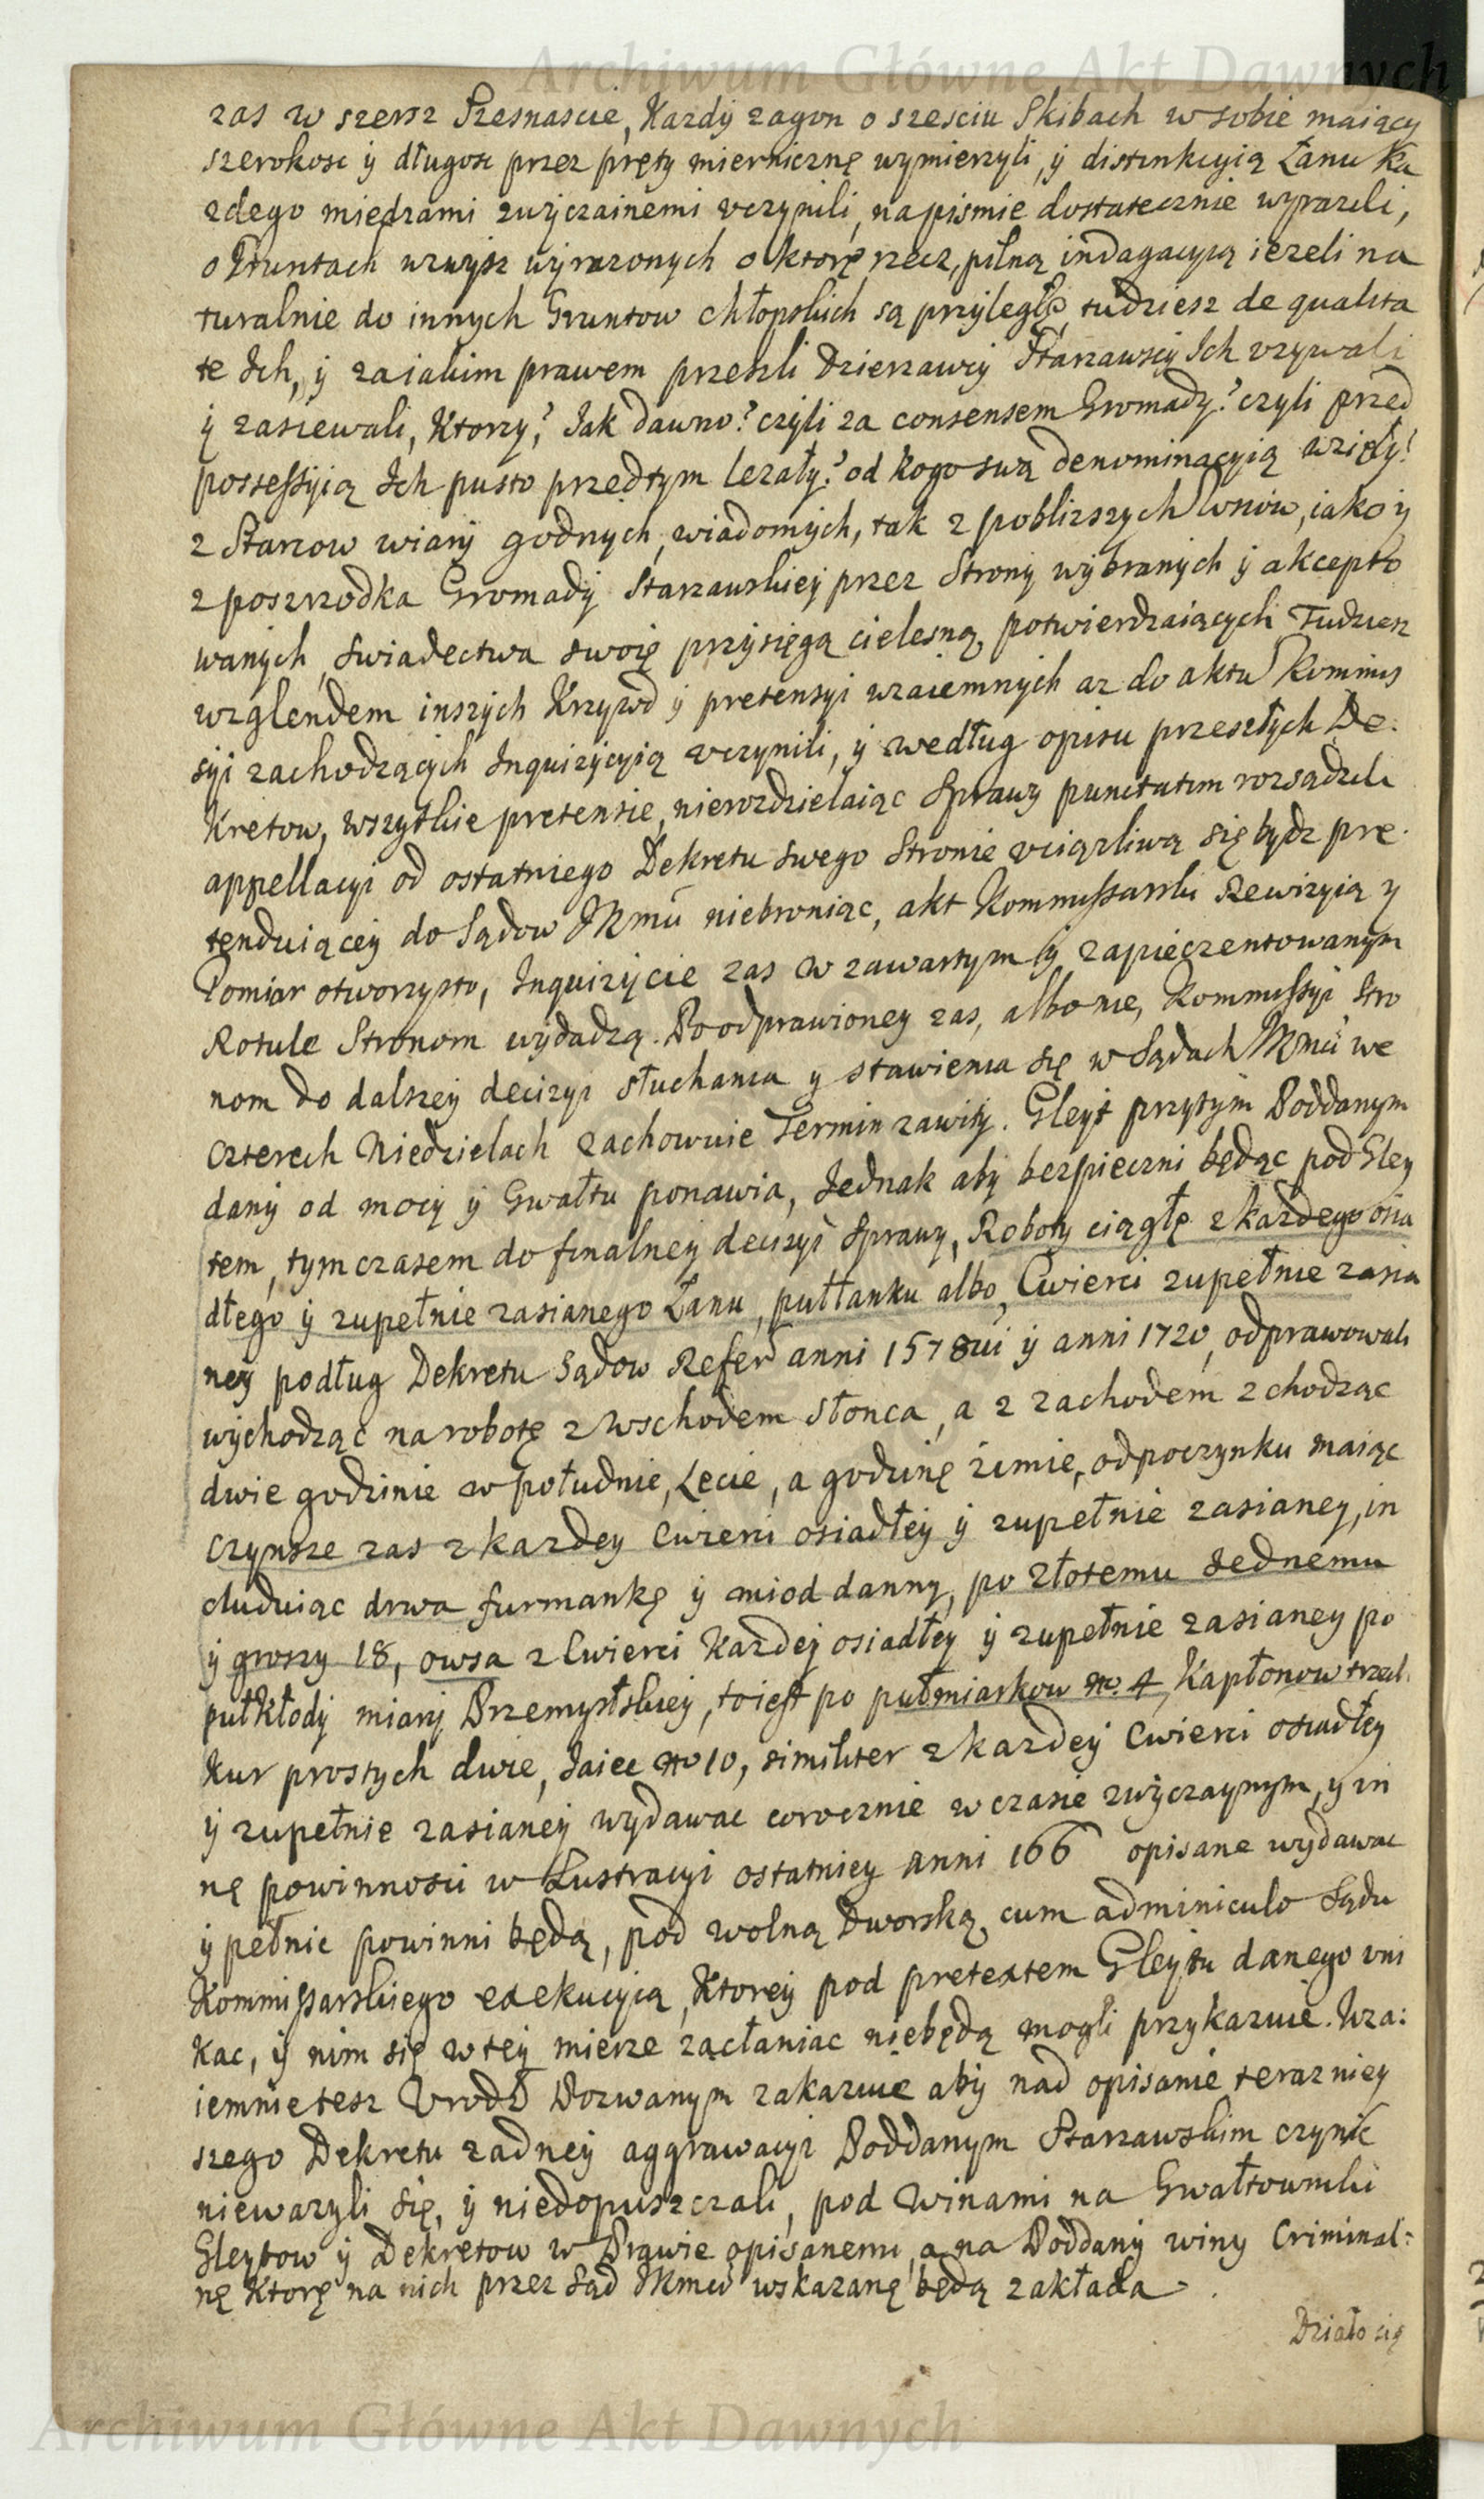 Archiwum Główne Akt Dawnych
zas w szersz Szesnascie, Kazdy zagon o szesciu Skibach w sobie maiący
szerokosc ÿ długosc przez pręty mierniczne wymierzyli, ÿ distinkcyią Łanu Ka
zdego miedzami zwÿczainemi vczynili, na pismie dostatecznie wyrazili,
o Gruntach wzwysz wÿrazonych o ktorę rzecz, pilną indagacyią iezeli na
turalnie do innych Gruntow chłopskich są przÿległę, tudziesz de qualita
te Ich, ÿ za iakim prawem przeszli Dzierzawcÿ Starzawscÿ Ich vzywali
ÿ zasiewali, Ktorzy? Jak dawno? czÿli za consensem Gromady? czyli przed
possessyią Ich pusto przedtym lezały? od kogo swą denominacyią wzięły?
z Starcow wiarÿ godnych, wiadomÿch, tak z poblizszych Wsiow, iako ÿ
z poszrzodka Gromadÿ Starzawskieÿ przez Stronÿ wÿbranych ÿ akcepto
wanych, swiadectwa swoię przÿsięgą cielesną potwierdzaiących Tudziesz
wzglendem inszÿch Krzywd ÿ pretensyi wzaiemnych az do aktu Kommis
syi zachodzącÿch Inquizÿcyią vczynili, ÿ według opisu przeszłych De:
kretow, wszytkie pretensie, nierozdzielaiąc Sprawy punctatim rozsądzili
appellacyi od ostatniego Dekretu swego Stronie vciązliwą się bydz prę
tenduiąceÿ do Sądow JKMci niebroniąc, akt Kommissarski Rewizyią y
Pomiar otworzysto, Inquizÿcie zas w zawartym ÿ zapieczentowanym
Rotule Stronom wydadzą. Po odprawioney zas, albo nie, Kommissyi Stro
nom do dalszeÿ decizyi słuchania y stawienia się w Sądach JKMci we
czterech Niedzielach zachowuie Termin zawitÿ. Gleyt przytÿm Poddanym
danÿ od mocÿ ÿ Gwałtu ponawia, Jednak abÿ bezpieczni będąc pod Gley
tem, tym czasem do finalney decizyi Sprawy, Roboty ciągłę z kazdego osia
dłego ÿ zupełnie zasianego Łanu, pułłanku albo Cwierci zupełnie zasia
ney podług Dekretu Sądow Refer anni 1578ui ÿ anni 1720, odprawowali
wÿchodząc na robotę z wschodem słonca, a z zachodem zchodząc
dwie godzinie w południe, Lecie, a godzinę zimie, odpoczynku maiąc
czynsze zas z kazdey cwierci osiadłeÿ ÿ zupełnie zasianey, in
cluduiąc drwa furmankę ÿ miod danny, po złotemu Jednemu
ÿ groszy 18, owsa z Cwierci Kazdeÿ osiadłey ÿ zupełnie zasianey po
pułkłodÿ miarÿ Przemyslskieÿ, to iest po pułmiarkow no. 4, Kapłonow trzech
kur prostych dwie, Jaiec no 10, similiter z kazdeÿ Cwierci osiadłey
ÿ zupełnie zasianeÿ wydawac corocznie w czasie zwÿczaynym, y in
nę powinnosci w Lustracyi ostatniey anni 166 opisane wydawac
ÿ pełnic powinni będą, pod wolną dworską, cum adminiculo Sądu
Kommissarskiego exekucyią, Ktoreÿ pod pretextem Gleytu danego vni
kac, ÿ nim się w teÿ mierze zacłaniac niebędą mogli przykazuie. Wza:
iemnie tesz Vrodz Pozwanym zakazuie abÿ nad opisanie terazniey
szego Dekretu zadneÿ aggrawacyi Poddanym Starzawskim czynic
niewazyli się, ÿ niedopuszczali, pod winami na Gwałtowniki
Gleytow ÿ Dekretow w Prawie opisanemi, a na Poddanÿ winy Criminal:
nę Ktorę na nich przez Sąd JKMci wskazanę będą zakłada.
Działo się
Archiwum Główne Akt Dawnych